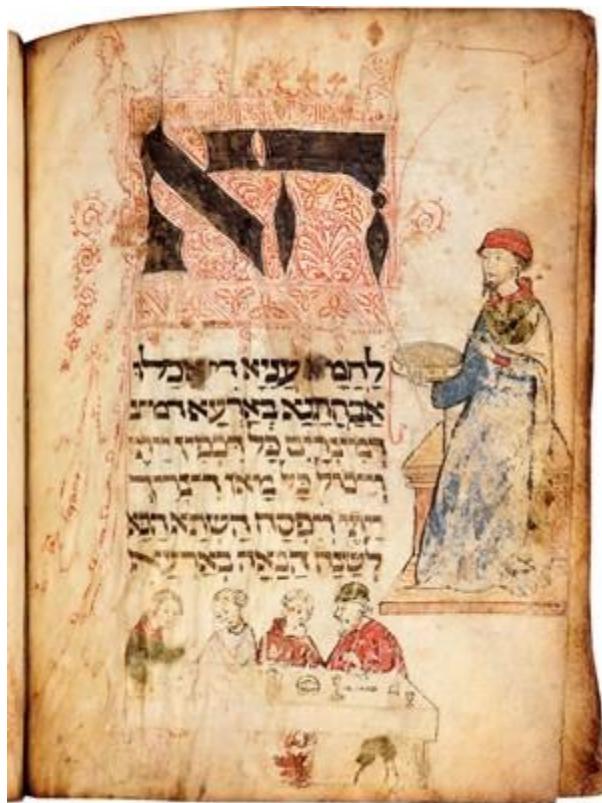 הא
לחמא עניא די אכלו
אבהתנא בארעא דמצ
דמצרים כל דכפין ייתי
וייכול כל מאן דצריך
ייתי ויפסח השתא הכא
לשנה הבאה בארעא